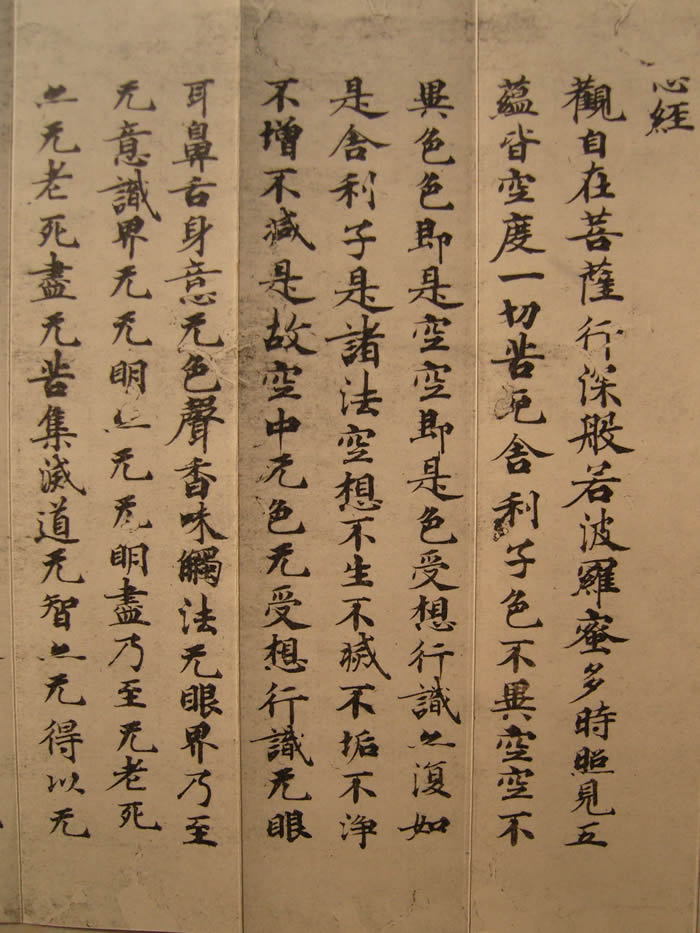 心経
觀自在菩薩行深般若波羅蜜多時照見五
蘊皆空度一切苦厄舍利子色不異空空不
異色色即是空空即是色受想行識亦復如
是舍利子是諸法空想不生不滅不垢不淨
不增不減是故空中无色无受想行識无眼
耳鼻舌身意无色聲香味觸法无眼界乃至
无意識界无无明亦无无明盡乃至无老死
亦无老死盡无苦集滅道无智亦无得以无